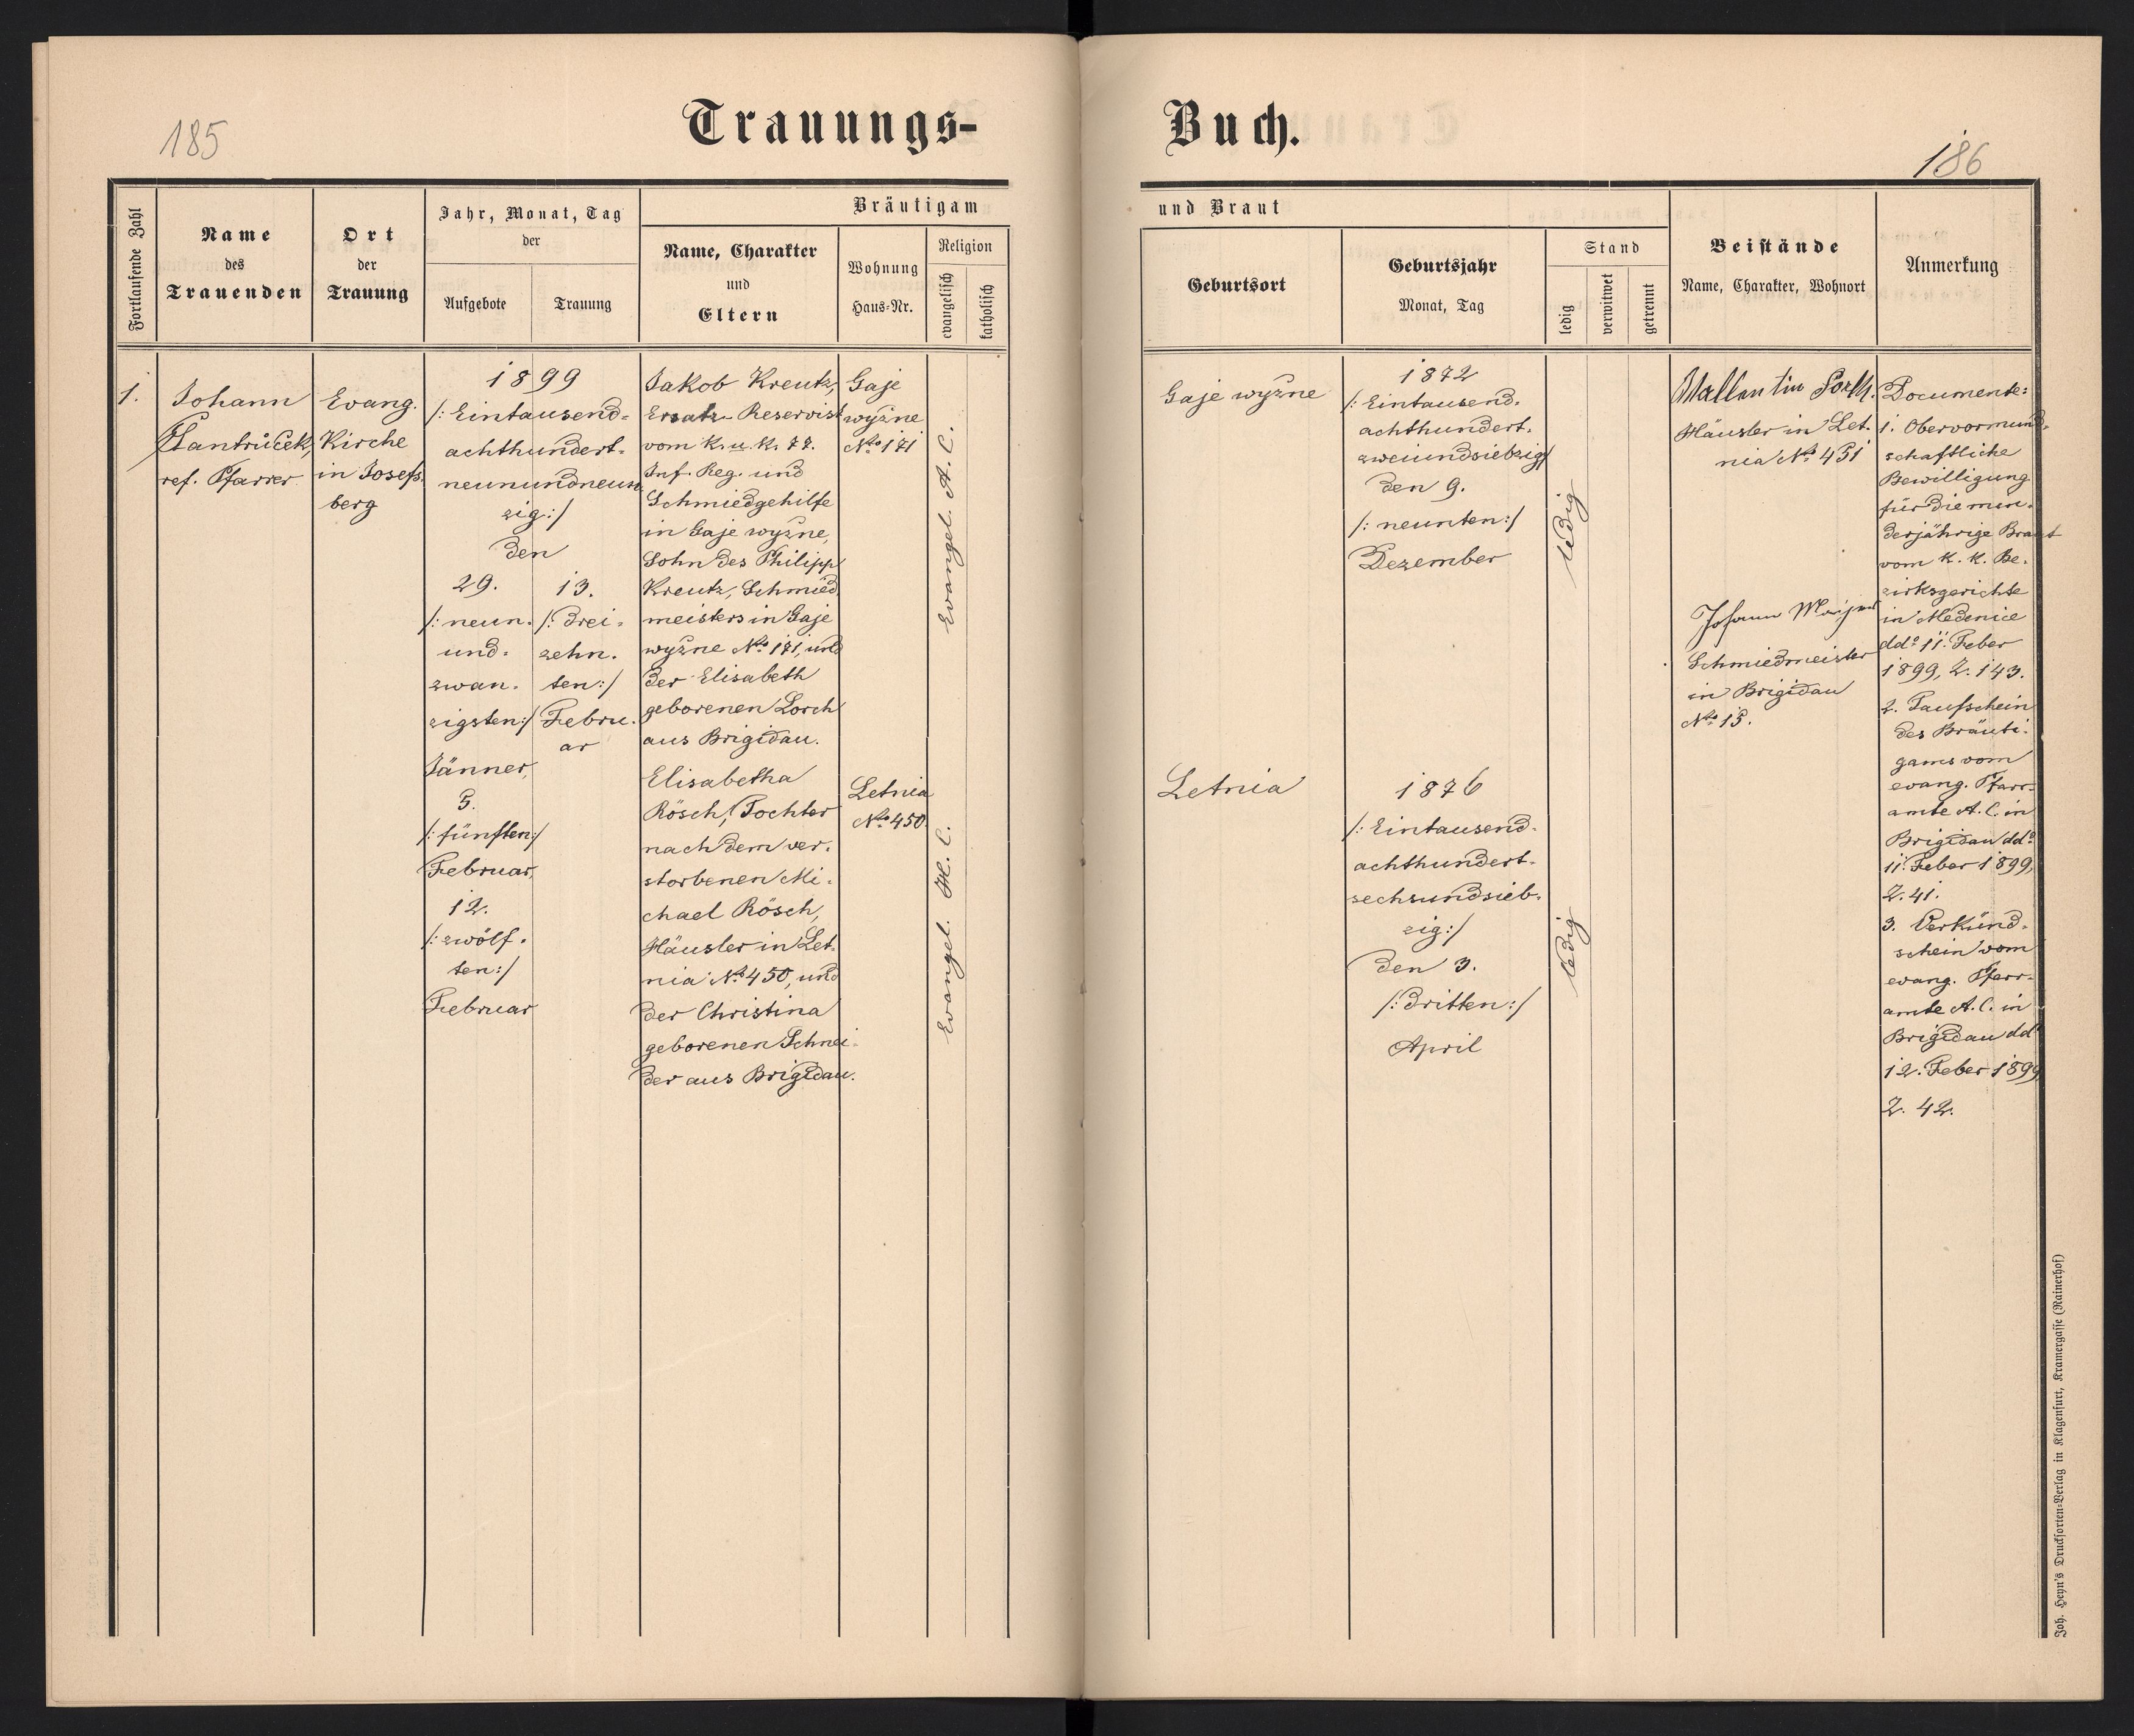 185
Trauungs-
Fortlaufende Zahl
Name
des
Trauenden
Ort
der
Trauung
Jahr, Monat, Tag
der
Aufgebote
Trauung
Bräutigam
Name, Charakter
und
Eltern
Wohnung
Haus-Nr.
Religion
evangelisch
katholisch
1.
Johann
ref. Pfarrer
Evang.
Kirche
in Josefs-
berg
1899
/: Eintausend-
achthundert-
neunundneun-
zig :/
den
29.
/: neun-
und-
zwan-
zigsten :/
Jänner,
5.
/: fünften :/
Februar,
12.
/: zwölf-
ten :/
Februar
13.
/: drei-
zehn-
ten :/
Febru-
ar
Jakob Kreutz,
Ersatz-Reservist
vom K. u. K. 77.
Inf. Reg. und
Schmiedgehilfe
in Gaje wyżne,
Sohn des Philipp
Kreutz, Schmied-
meisters in Gaje
wyżne No 171, und
der Elisabeth
geborenen Lorch
aus Brigidau.
Elisabetha
Rösch, Tochter
nach dem ver-
storbenen Mi-
chael Rösch,
Häusler in Let-
nia No 450, und
der Christina
geborenen Schnei-
der aus Brigidau.
Gaje
wyżne
No 171
Letnia
No 450.
Evangel. A. C.
Evangel. H. C.
Buch.
186
und Braut
Geburtsort
Geburtsjahr
Monat, Tag
Stand
ledig
verwitwet
getrennt
Beistände
Name, Charakter, Wohnort
Anmerkung
Gaje wyżne
1872
/: Eintausend-
achthundert-
zweiundsiebzig/
den 9.
/: neunten :/
Dezember
ledig
Letnia
1876
/: Eintausend-
achthundert-
sechsundsieb-
zig :/
den 3.
/: dritten :/
April
ledig
Häusler in Let-
nia No 451
Johann
Schmiedmeister
in Brigidau
No 15.
Documente:
1. Obervormund-
schaftliche
Bewilligung
für die min-
derjährige Braut
vom K. K. Be-
zirksgerichte
in Medenice
ddo 11. Feber
1899, Z. 143.
2. Taufschein
des Bräuti-
gams vom
evang. Pfarr-
amte A. C. in
Brigidau ddo
11. Feber 1899,
Z. 41.
3. Verkünd-
schein vom
evang. Pfarr-
amte A. C. in
Brigidau ddo
12. Feber 1899
Z. 42.
Joh. Heyn's Drucksorten-Verlag in Klagenfurt, Kramergasse (Rainerhof)